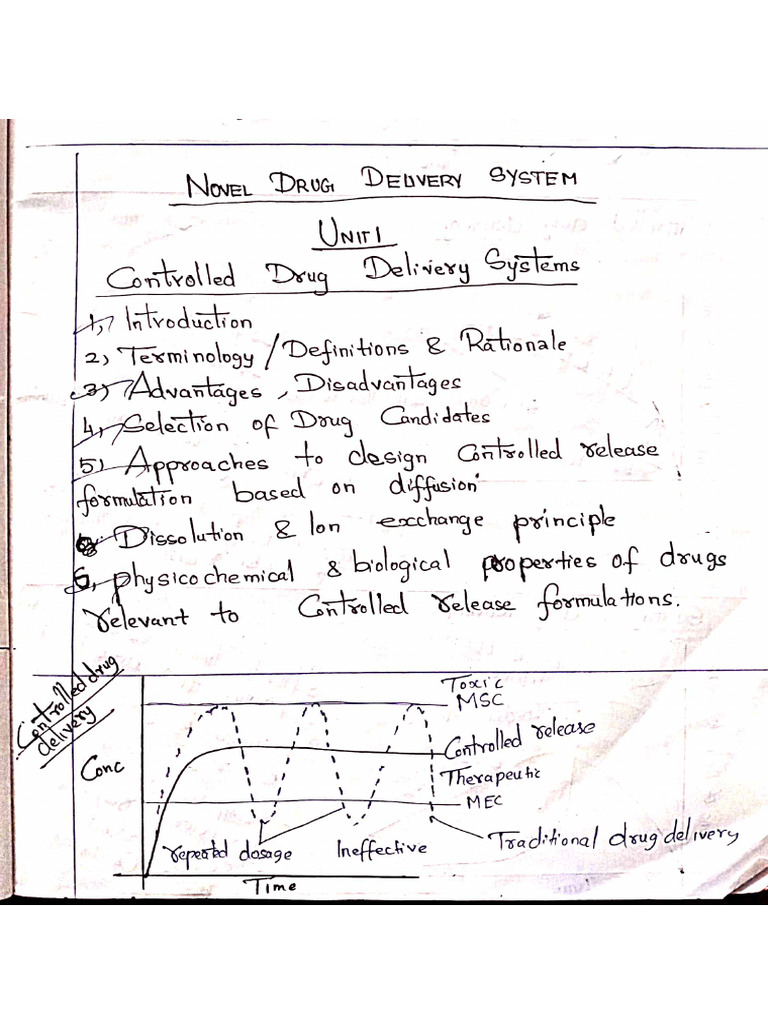 NOVEL DRUG DELIVERY SYSTEM
UNIT 1
Controlled Drug Delivery Systems
1, Introduction
2, Terminology / Definitions & Rationale
3) Advantages, Disadvantages
4, Selection of Drug Candidates
5) Approaches to design Controlled release
formulation based on diffusion
Dissolution & Ion exchange principle
6, physicochemical & biological properties of drugs
relevant to Controlled release formulations.
Controlled drug
delivery
Toxic
MSC
Controlled release
Conc
Therapeutic
MEC
repeated dosage
Ineffective
Traditional drug delivery
Time